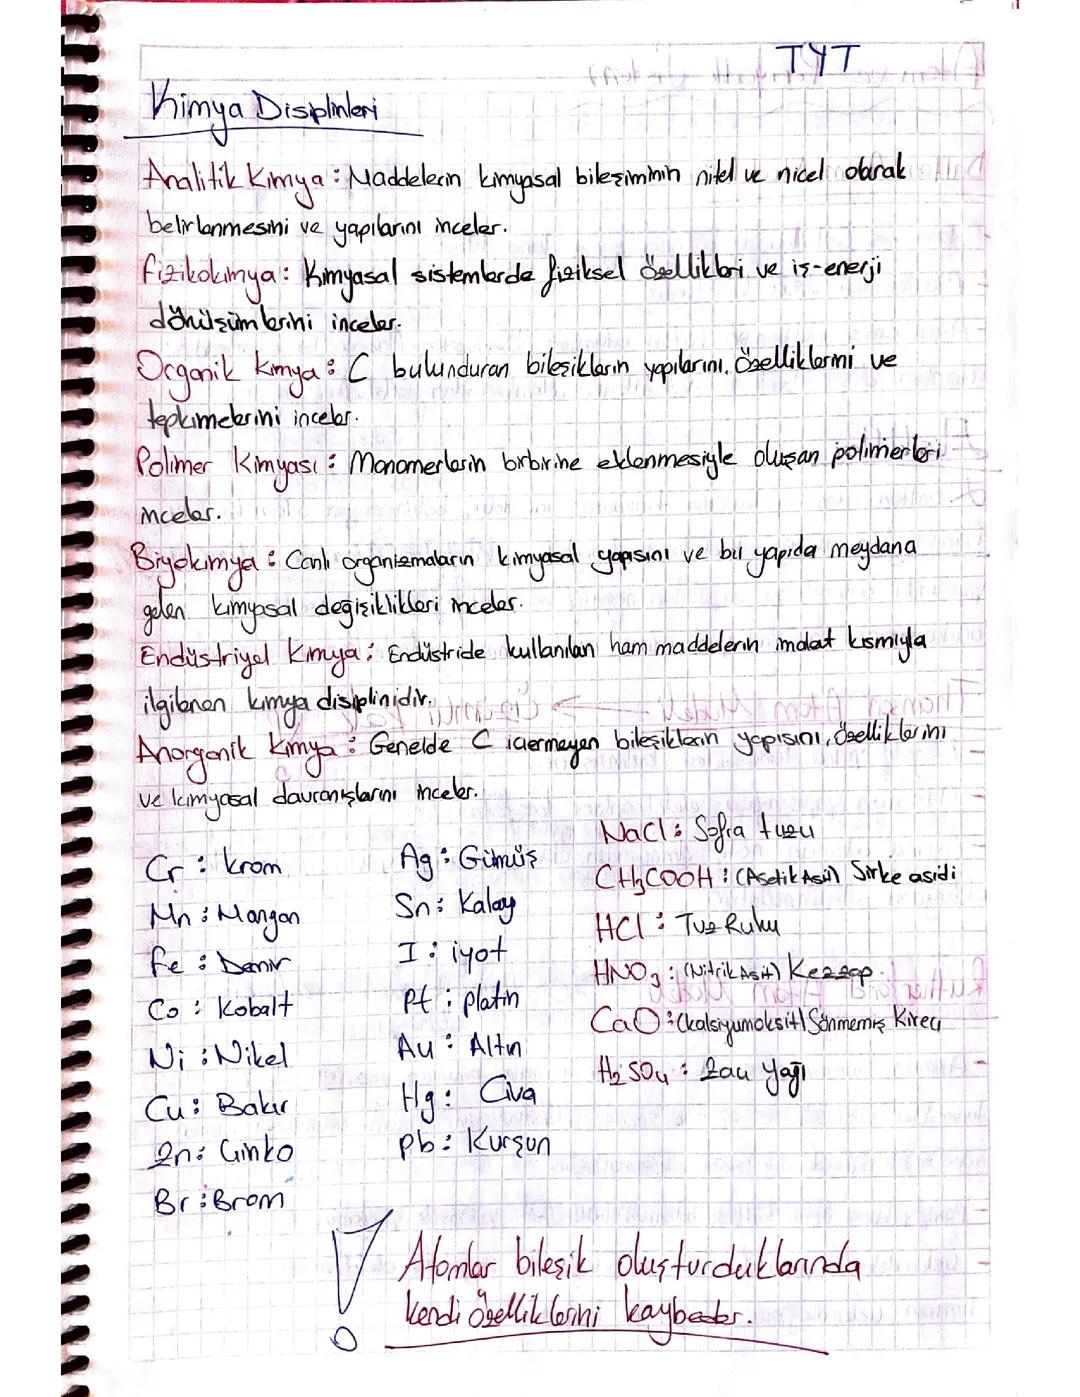 TYT
Kimya Disiplinleri
Analitik Kimya : Maddelerin kimyasal bileşiminin nitel ve nicel olarak
belirlenmesini ve yapılarını inceler.
Fizikokimya : Kimyasal sistemlerde fiziksel özellikleri ve iş-enerji
dönüşümlerini inceler.
Organik Kimya : C bulunduran bileşiklerin yapılarını, özelliklerini ve
tepkimelerini inceler.
Polimer Kimyası : Monomerlerin birbirine eklenmesiyle oluşan polimerleri
inceler.
Biyokimya : Canlı organizmaların kimyasal yapısını ve bu yapıda meydana
gelen kimyasal değişiklikleri inceler.
Endüstriyel Kimya : Endüstride kullanılan ham maddelerin imalat kısmıyla
ilgilenen kimya disiplinidir.
Anorganik Kimya : Genelde C içermeyen bileşiklerin yapısını, özelliklerini
ve kimyasal davranışlarını inceler.
Cr : Krom
Mn : Mangan
Fe : Demir
Co : Kobalt
Ni : Nikel
Cu : Bakır
Zn : Çinko
Br : Brom
Ag : Gümüş
Sn : Kalay
I : iyot
Pt : platin
Au : Altın
Hg : Civa
Pb : Kurşun
NaCl : Sofra tuzu
CH3COOH : (Asetik Asit) Sirke asidi
HCl : Tuz Ruhu
HNO3 : (Nitrik Asit) Kezzap
CaO : (kalsiyumoksit) Sönmemiş Kireç
H2SO4 : Zaç Yağı
! Atomlar bileşik oluşturduklarında
kendi özelliklerini kaybeder.